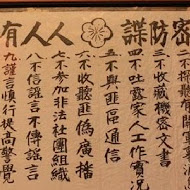 密防諜 人人有
三不收藏機密文書
四不吐露家人工作實況
五不與匪區通信
六不收聽匪偽廣播
七不參加非法社團組織
八不信謠言不傳謠言
九謹言慎行提高警覺